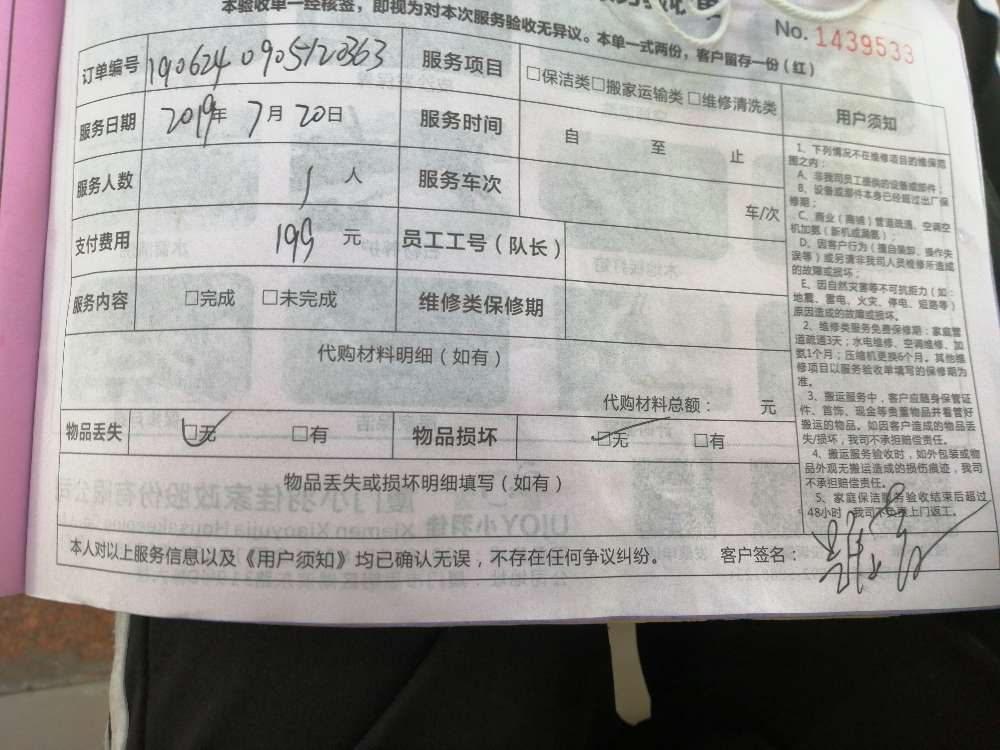 本验收单一经核签，即视为对本次服务验收无异议。本单一式两份，客户留存一份（红）
No. 1439533
订单编号 190624 0905120363 服务项目 □保洁类□搬家运输类 □维修清洗类
服务日期 2019年 7月 20日 服务时间 自 至 止
服务人数 1 人 服务车次 车/次
支付费用 199 元 员工工号（队长）
服务内容 □完成 □未完成 维修类保修期
代购材料明细（如有）
代购材料总额： 元
物品丢失 □无 □有 物品损坏 □无 □有
物品丢失或损坏明细填写（如有）
本人对以上服务信息以及《用户须知》均已确认无误，不存在任何争议纠纷。 客户签名：
用户须知
1、下列情况不在维修项目的维保范
围之内：
A、非我司员工提供的设备或部件；
B、设备或部件本身已经超过出厂保
修期；
C、商业（商铺）管道疏通、空调空
机加氨（新机或漏氨）；
D、因客户行为（擅自装卸、操作失
误等）或另请非我司人员检修所造成
的故障或损坏；
E、因自然灾害等不可抗拒力（如：
地震、雷电、火灾、停电、短路等）
原因造成的故障或损坏。
2、维修类服务免费保修期：家庭管
道疏通3天；水电维修、空调维修、加
氨1个月；压缩机更换6个月。其他维
修项目以服务验收单填写的保修期为
准。
3、搬运服务中，客户应随身保管证
件、首饰、现金等贵重物品并看管好
搬运的物品。如因客户造成的物品丢
失/损坏，我司不承担赔偿责任。
4、搬运服务验收时，如外包装或物
品外观无搬运造成的损伤痕迹，我司
不承担赔偿责任。
5、家庭保洁服务验收结束后超过
48小时，我司不负责上门返工。